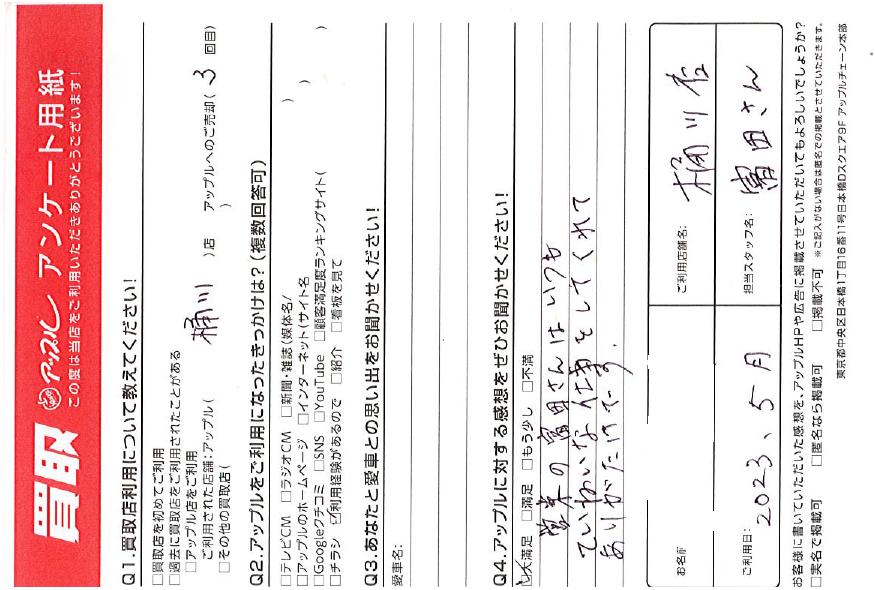 買取 アップル アンケート用紙
この度は当店をご利用いただきありがとうございます!
Q1.買取店利用について教えてください!
□買取店を初めてご利用
□過去に買取店をご利用されたことがある
□アップル店をご利用
ご利用された店舗:アップル( 桶川 )店 アップルへのご売却( 3 回目)
□その他の買取店( )
Q2.アップルをご利用になったきっかけは?(複数回答可)
□テレビCM □ラジオCM □新聞・雑誌(媒体名/ )
□アップルのホームページ □インターネット(サイト名 )
□Googleクチコミ □SNS □YouTube □顧客満足度ランキングサイト( )
□チラシ ☑利用経験があるので □紹介 □看板を見て
Q3.あなたと愛車との思い出をお聞かせください!
愛車名:
Q4.アップルに対する感想をぜひお聞かせください!
☑大満足 □満足 □もう少し □不満
営業の富田さんはいつも
ていねいな仕事をしてくれて
ありがたいです。
お名前
ご利用店舗名: 桶川店
ご利用日: 2023、5月
担当スタッフ名: 富田さん
お客様に書いていただいた感想を、アップルHPや広告に掲載させていただいてもよろしいでしょうか?
□実名で掲載可 □匿名なら掲載可 □掲載不可 ※ご記入がない場合は匿名での掲載とさせていただきます。
東京都中央区日本橋1丁目16番11号日本橋Dスクエア9F アップルチェーン本部